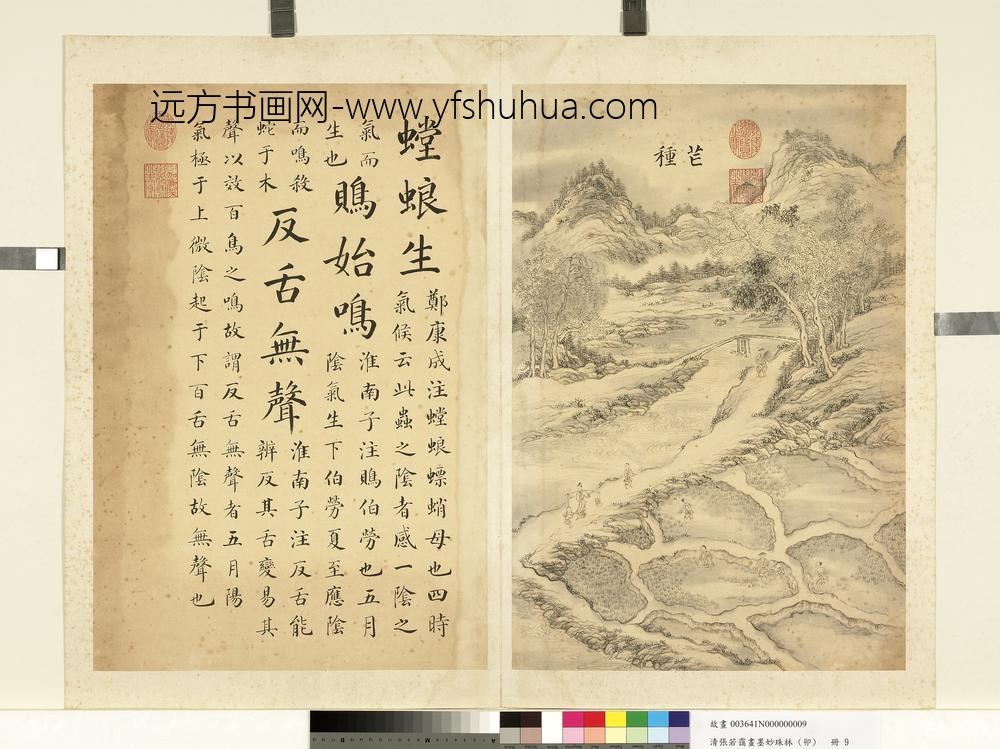 远方书画网-www.yfshuhua.com
芒種
螳蜋生
鄭康成注螳蜋螵蛸母也四時
氣候云此蟲之陰者感一陰之
氣而
生也
鵙始鳴
淮南子注鵙伯勞也五月
陰氣生下伯勞夏至應陰
而鳴殺
蛇于木
反舌無聲
淮南子注反舌能
辨反其舌變易其
聲以效百鳥之鳴故謂反舌無聲者五月陽
氣極于上微陰起于下百舌無陰故無聲也
故畫 003641N000000009
清張若靄畫墨妙珠林（卯） 冊 9